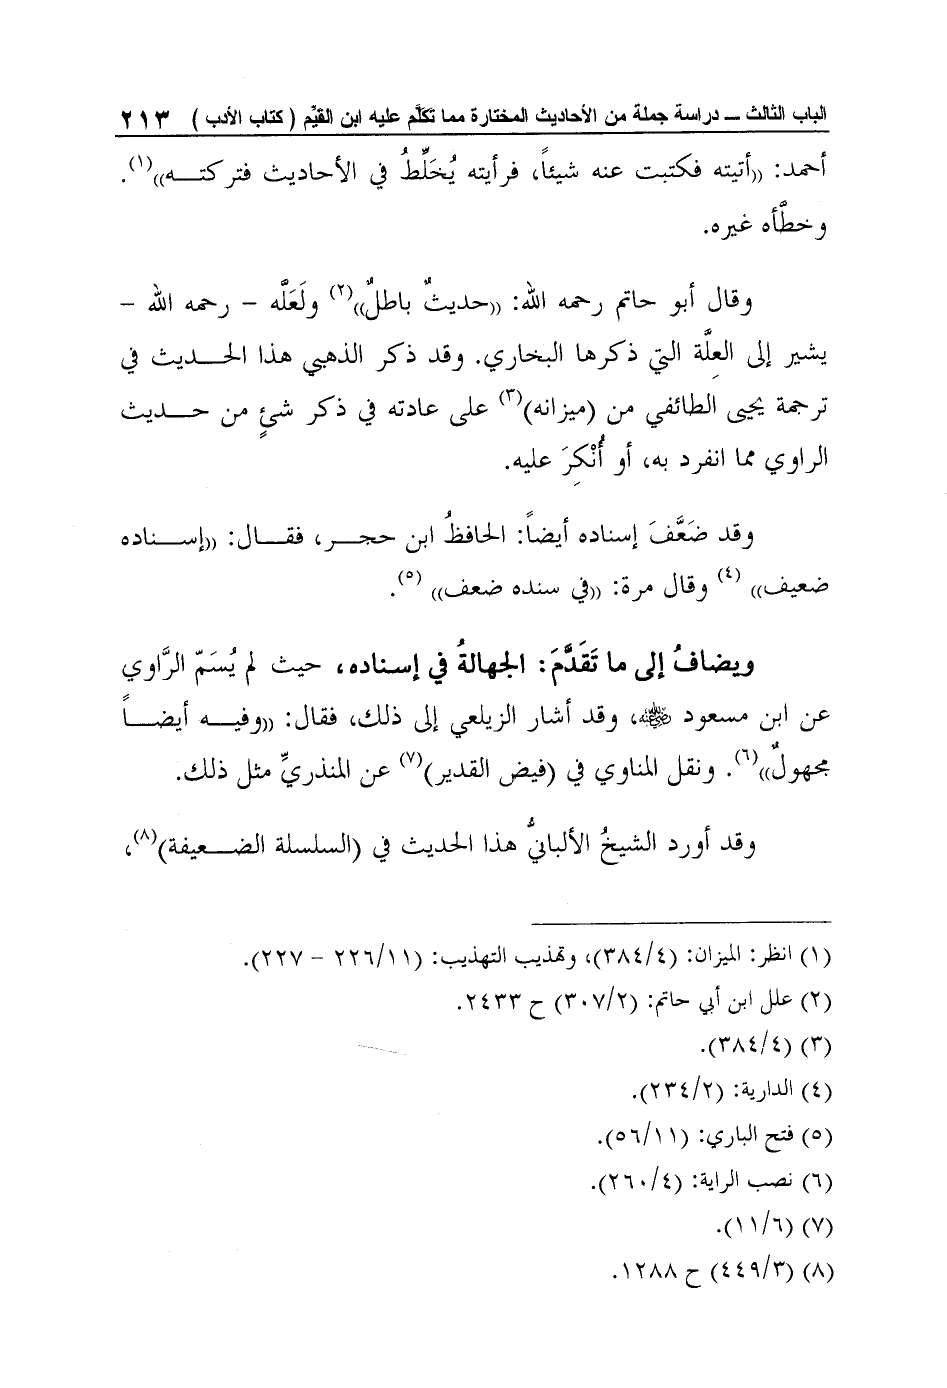 الباب الثالث ــ دراسة جملة من الأحاديث المختارة مما تكلَّم عليه ابن القيِّم ( كتاب الأدب ) ٢١٣
أحمد: ((أتيته فكتبت عنه شيئاً، فرأيته يُخَلِّطُ في الأحاديث فتركتــه))(١).
وخطَّأه غيره.
وقال أبو حاتم رحمه الله: ((حديثٌ باطلٌ))(٢) ولَعَلَّه - رحمه الله -
يشير إلى العِلَّة التي ذكرها البخاري. وقد ذكر الذهبي هذا الحــديث في
ترجمة يحيى الطائفي من (ميزانه)(٣) على عادته في ذكر شئٍ من حــديث
الراوي مما انفرد به، أو أُنْكِرَ عليه.
وقد ضَعَّفَ إسناده أيضاً: الحافظُ ابن حجــر، فقــال: ((إســناده
ضعيف)) (٤) وقال مرة: ((في سنده ضعف)) (٥).
ويضافُ إلى ما تَقَدَّمَ: الجهالةُ في إسناده، حيث لم يُسَمّ الرَّاوي
عن ابن مسعود ﷺ، وقد أشار الزيلعي إلى ذلك، فقال: ((وفيــه أيضــاً
مجهولٌ))(٦). ونقل المناوي في (فيض القدير)(٧) عن المنذريِّ مثل ذلك.
وقد أورد الشيخُ الألبانيُّ هذا الحديث في (السلسلة الضــعيفة)(٨)،
(١) انظر: الميزان: (٣٨٤/٤)، وتهذيب التهذيب: (٢٢٦/١١ - ٢٢٧).
(٢) علل ابن أبي حاتم: (٣٠٧/٢) ح ٢٤٣٣.
(٣) (٣٨٤/٤).
(٤) الدارية: (٢٣٤/٢).
(٥) فتح الباري: (٥٦/١١).
(٦) نصب الراية: (٢٦٠/٤).
(٧) (١١/٦).
(٨) (٤٤٩/٣) ح ١٢٨٨.